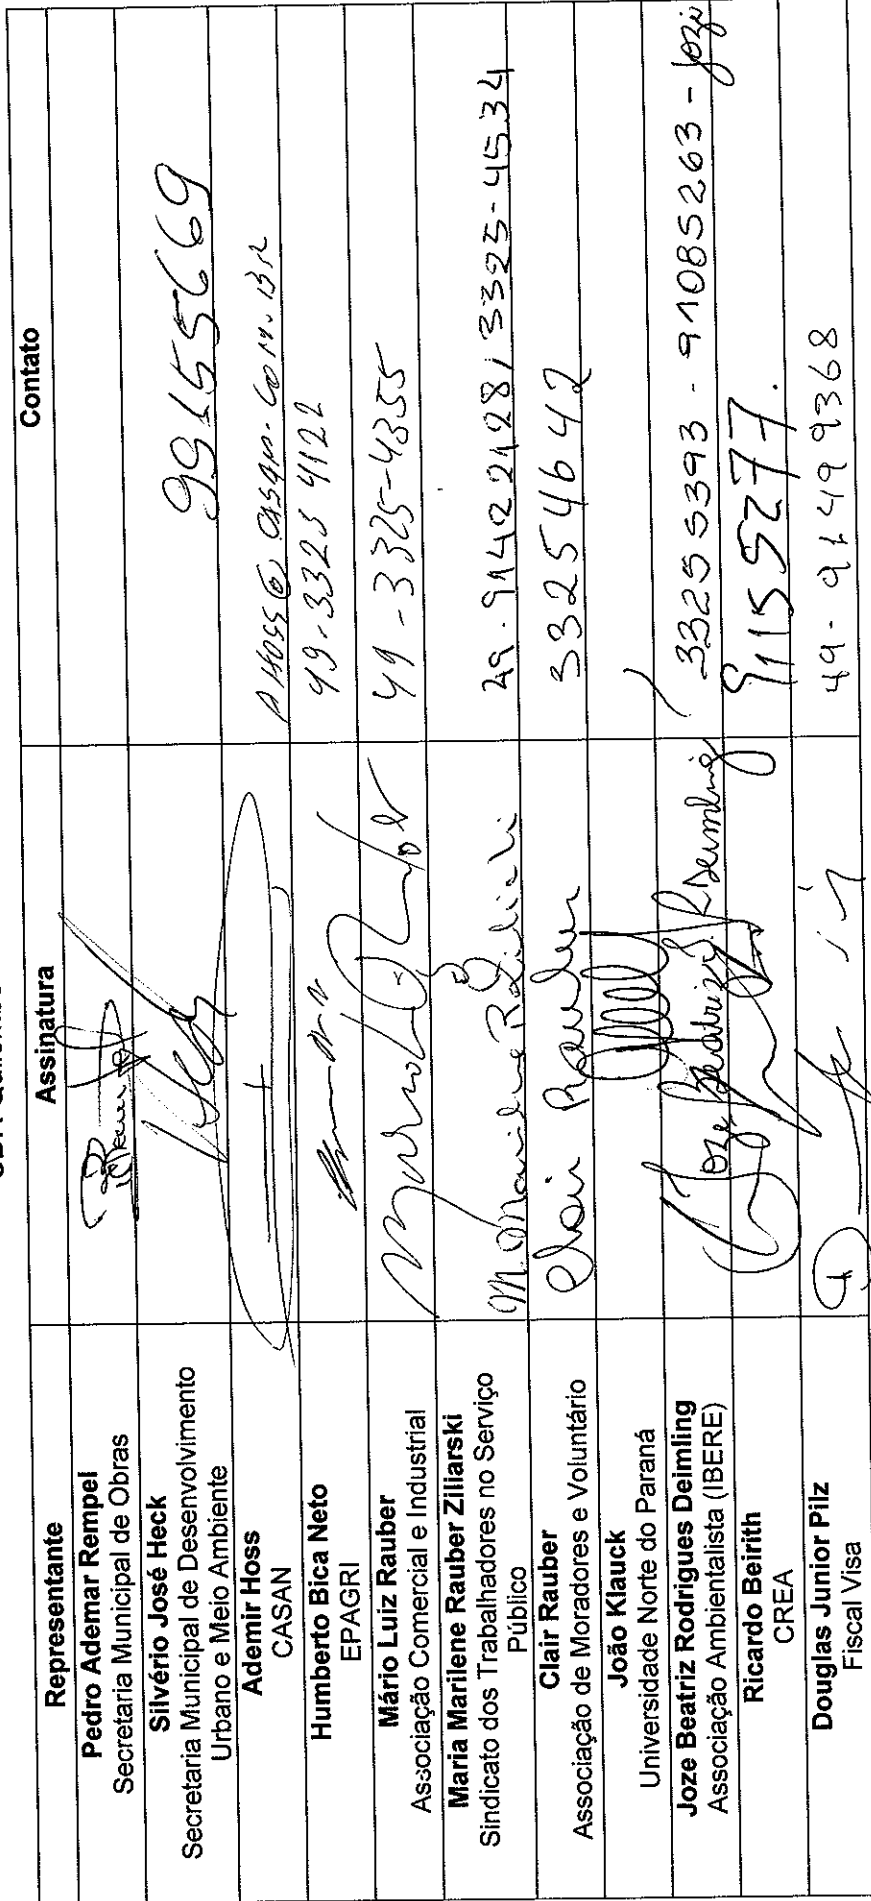 Representante Assinatura Contato
Pedro Ademar Rempel
Secretaria Municipal de Obras
Silvério José Heck
Secretaria Municipal de Desenvolvimento
Urbano e Meio Ambiente
99155669
Ademir Hoss
CASAN
AHoss@casan.com.br
Humberto Bica Neto
EPAGRI
49-3325 4122
Mário Luiz Rauber
Associação Comercial e Industrial
49-3325-4355
Maria Marilene Rauber Ziliarski
Sindicato dos Trabalhadores no Serviço
Público
49. 91422128 / 3325-4534
Clair Rauber
Associação de Moradores e Voluntário
Clair Rauber
33254642
João Klauck
Universidade Norte do Paraná
Joze Beatriz Rodrigues Deimling
Associação Ambientalista (IBERE)
Joze Beatriz R Deimling
33255393 - 91085263 - Joze
Ricardo Beirith
CREA
91155277.
Douglas Junior Pilz
Fiscal Visa
49-91499368